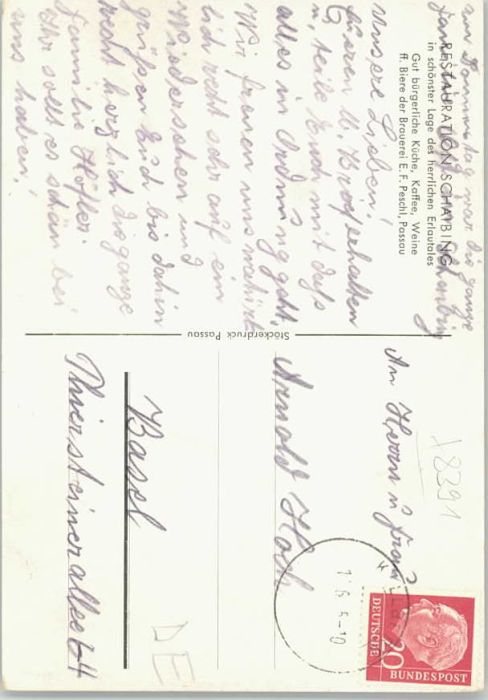 RESTAURATION SCHAIBING
in schönster Lage des herrlichen Erlautales
Gut bürgerliche Küche, Kaffee, Weine
ff. Biere der Brauerei E. F. Peschl, Passau
am Sonntag war die ganze
Unsere Lieben!
Euren lb. Brief erhalten
u. teile Euch mit daß
alles in Ordnung geht,
Wir freuen uns
lich recht sehr auf ein
Wiedersehen und
grüßen Euch bis dahin
recht herzlich die ganze
Familie Höfler
Ihr sollt es schön bei
uns haben!
Stöckerdruck Passau
An Herrn u. Frau
Arnold Hoch
Basel
Thiersteinerallee 64
18391
DE
DEUTSCHE
BUNDESPOST
20